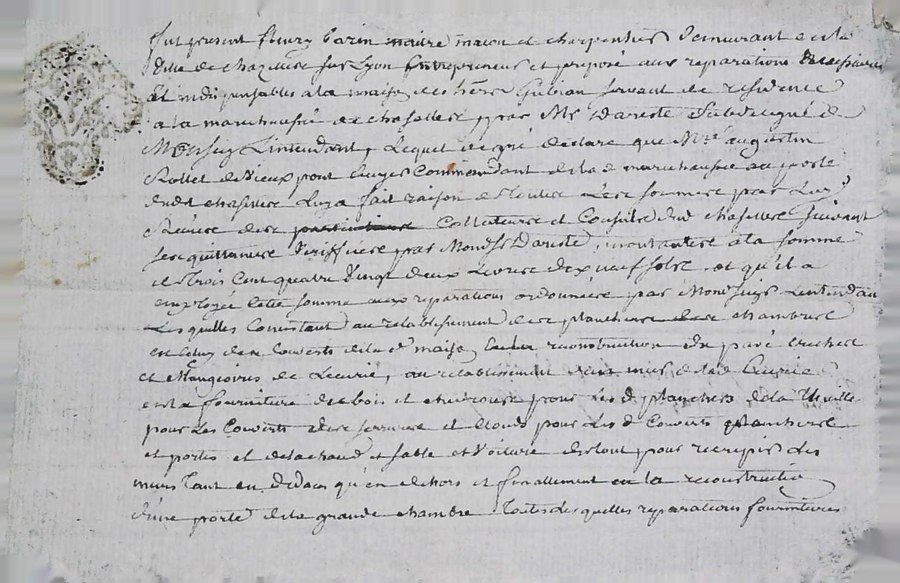 fut present fleury Carin maitre macon et charpentier demeurant en la
Ville de chazelles sur Lyon Entrepreneur et preposé aux reparations necessaires
Et indispensables a la maison des hers Gubian servant de residence
a la marchaussée de chaselles par Mr Dareste Subdelegué de
Monseigr Lintendant, Lequel de gré declare que Mre augustin
Rollet de vieux pont Ecuyer Commandant de lad marchaussée au poste
dud chaselles Luy a fait raison de toutes Les sommes par Luy
Reçues des Collecteurs et Consuls dud chaselles suivant
ses quittances Veriffiées par mondSr Dareste, montantes a la somme
de trois Cent quatre vingt deux Livres dix neuf sols et qu'il a
employée cette somme aux reparations ordonnées par Mondseigr Lintendan
Lesquelles Consistent au retablissement des planchers des chambres
en celuy des Couverts de la de maison reconstruction du pavé creches
et Mangeoires de Lecurie, au retablissement des murs de lad Ecurie
en la fourniture des bois et necessaire pour Les d planchers de la thuille
pour Les Couverts des serrures et Clouds pour Les d Couverts planchers
et portes et de la chaud et sable et voiture du tout pour recrepir Les
murs tant en dedans qu'en dehors et finallement en la reconstruction
d'une porte de la grande chambre toutes Lesquelles reparations fournitures